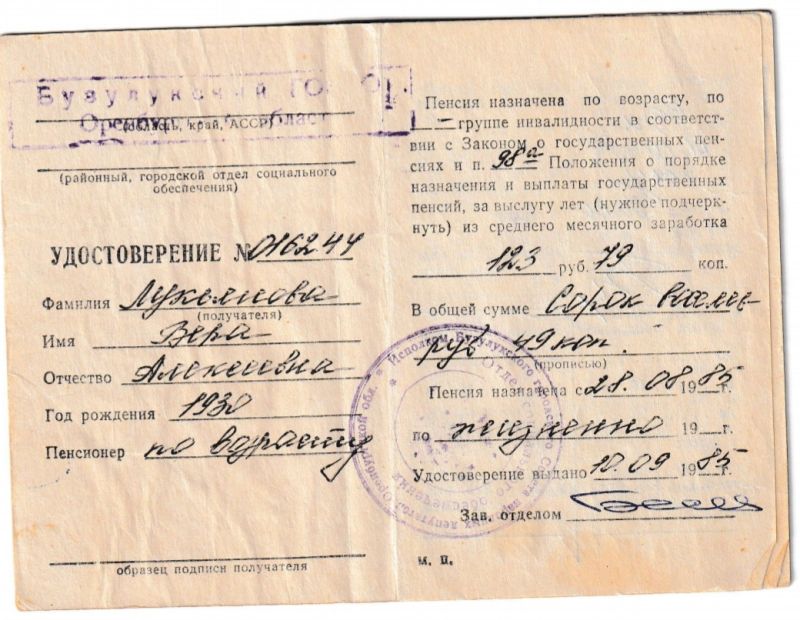 Бузулукский ГО
Оренбу обл
(область, край, АССР)
(районный, городской отдел социального
обеспечения)
УДОСТОВЕРЕНИЕ № 016244
Фамилия Лукьянова
(получателя)
Имя Вера
Отчество Алексеевна
Год рождения 1930
Пенсионер по возрасту
образец подписи получателя
Пенсия назначена по возрасту, по
— группе инвалидности в соответст-
вии с Законом о государственных пен-
сиях и п. 98а Положения о порядке
назначения и выплаты государственных
пенсий, за выслугу лет (нужное подчерк-
нуть) из среднего месячного заработка
123 руб. 79 коп.
В общей сумме Сорок восемь
руб 49 коп.
(прописью)
Пенсия назначена с 28.08 1985 г.
по жизненно 19 г.
Удостоверение выдано 10.09 1985 г.
Зав. отделом
М. П.
Исполком Бузулукского городского Совета народных депутатов Оренбургской обл.
Отдел социального обеспечения